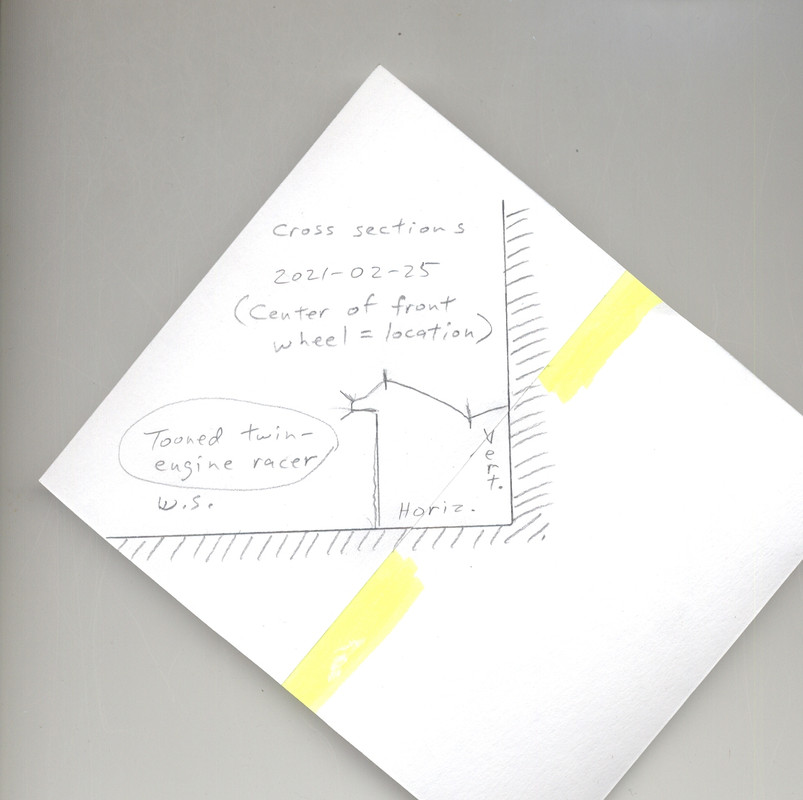 Cross sections
2021-02-25
(Center of front
wheel = location)
Tooned twin-
engine racer
w.s.
Horiz.
Vert.